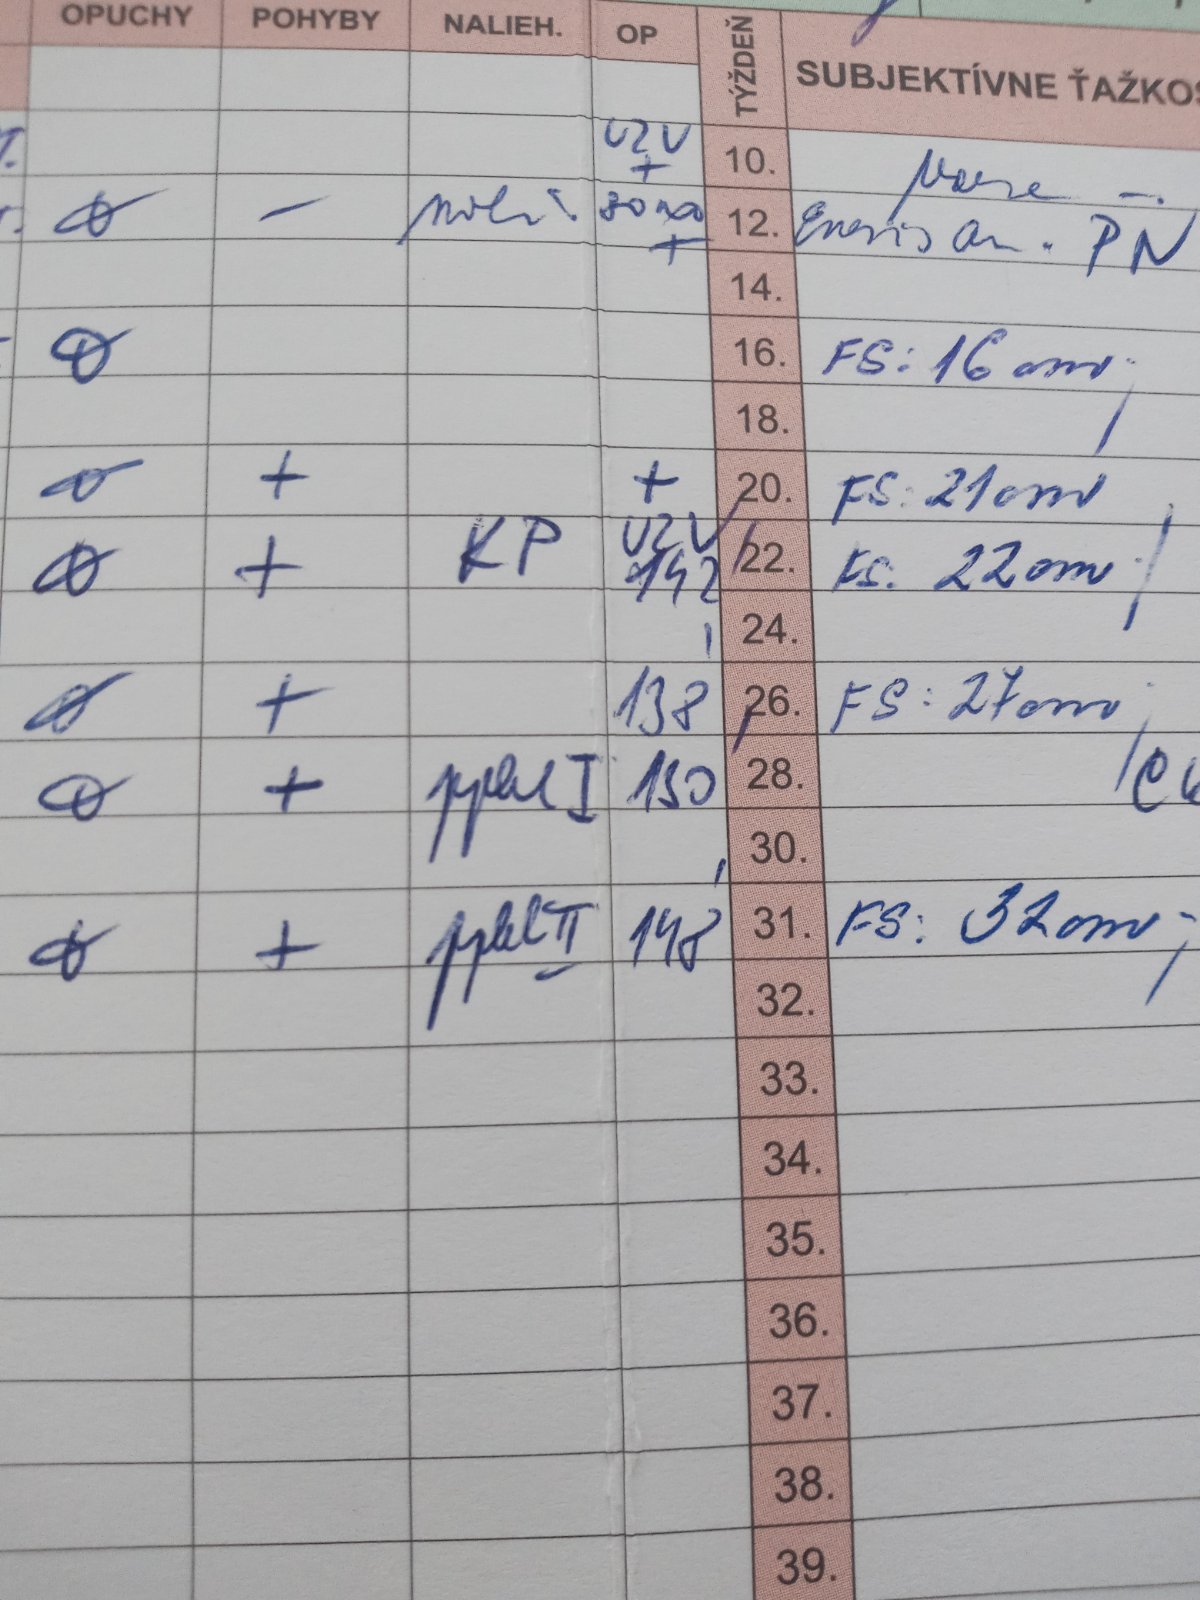 OPUCHY POHYBY NALIEH. OP TÝŽDEŇ SUBJEKTÍVNE ŤAŽKOS
UZV
+ 10.
Ø – 12. PN
+
14.
Ø 16. FS: 16 cm
18.
Ø + + 20. FS: 21 cm
Ø + KP UZV 142 22. FS: 22 cm
24.
Ø + 138 26. FS: 27 cm
Ø + I 150 28.
30.
Ø + II 148 31. FS: 32 cm
32.
33.
34.
35.
36.
37.
38.
39.